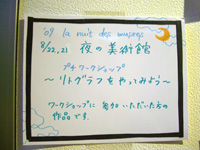 '09 la nuit des musées
8/22.23 夜の美術館
プチワークショップ
〜リトグラフをやってみよう〜
ワークショップに参加いただいた方の
作品です。